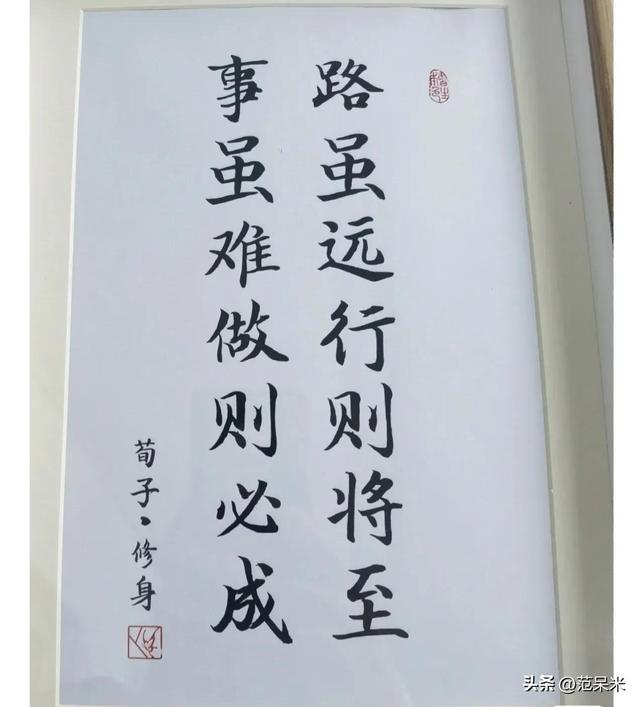 路虽远行则将至
事虽难做则必成
荀子·修身
头条 @范呆米